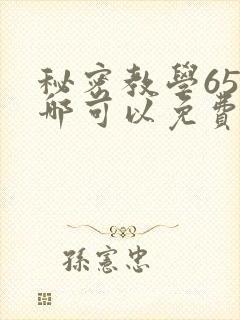 秘密教學65
哪可以免費
孫憲忠